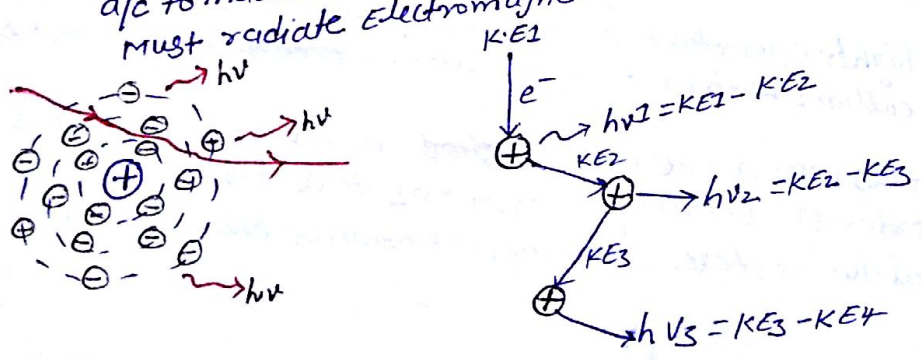 a/c to
Must radiate Electrom
hν
hν
hν
K·E1
e⁻
hν1 = KE1 - K·E2
KE2
hν2 = KE2 - KE3
KE3
hν3 = KE3 - KE4